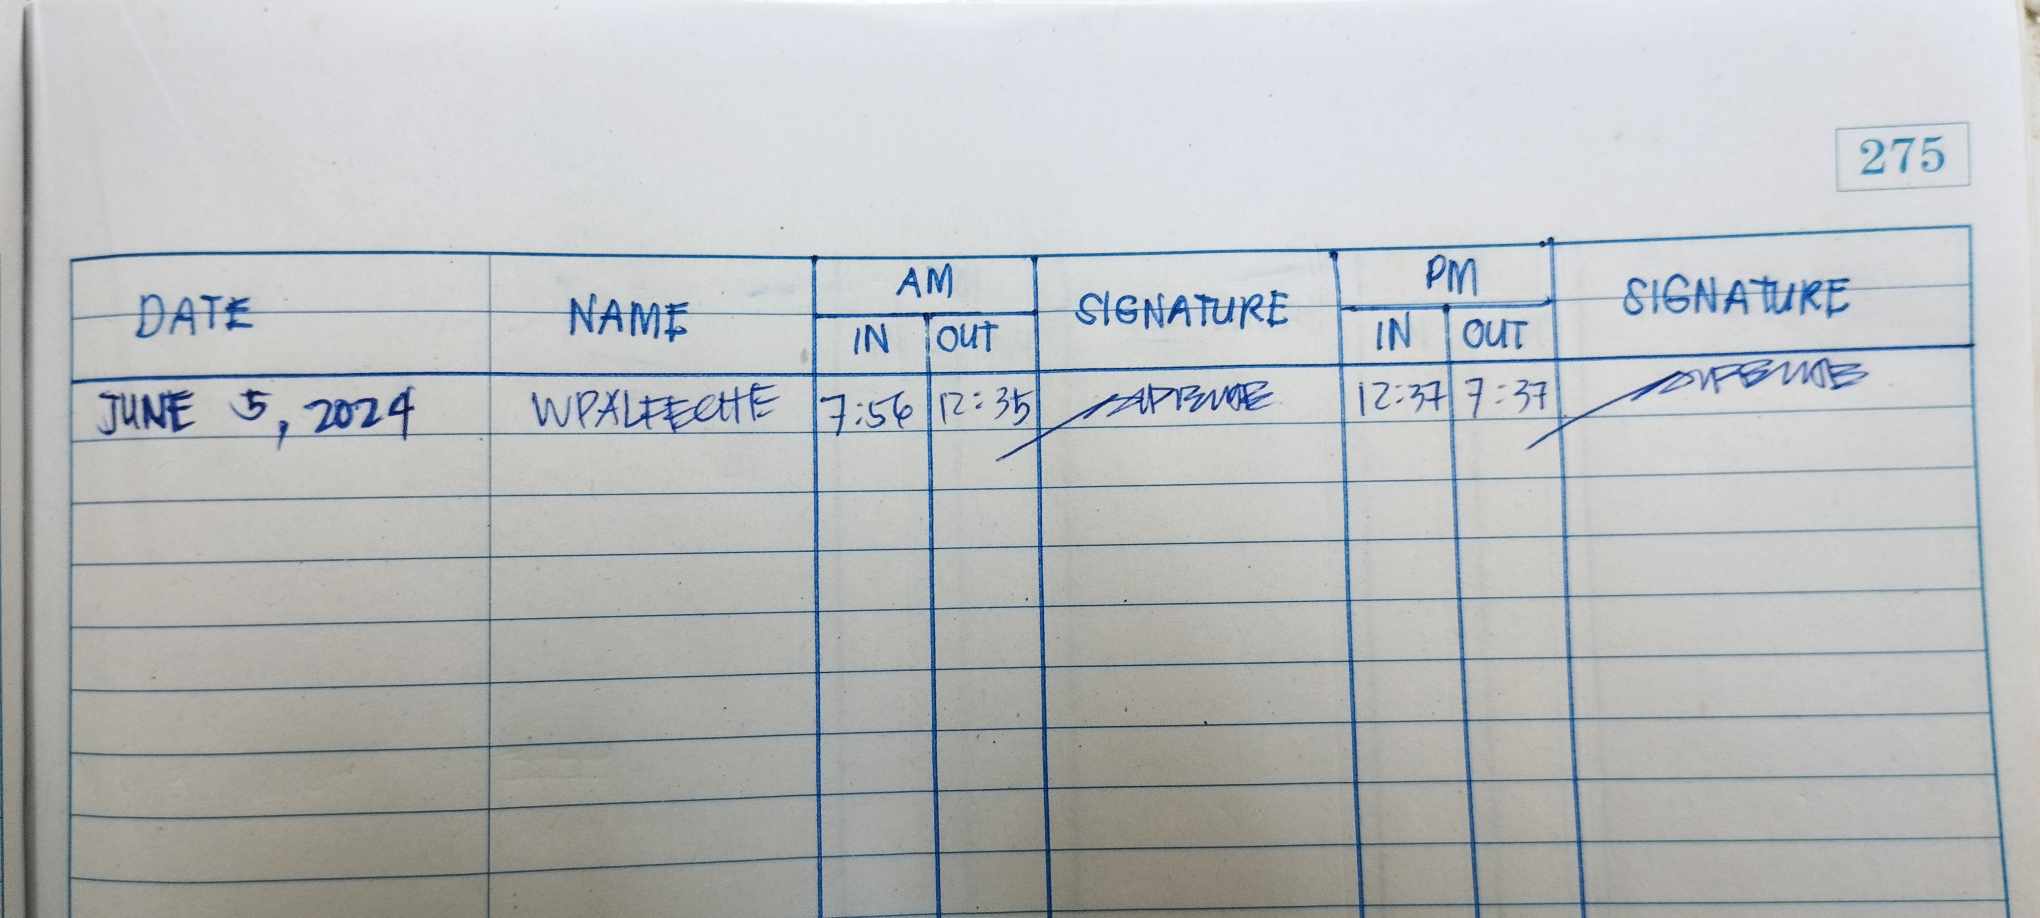 275
DATE NAME AM SIGNATURE PM SIGNATURE
IN OUT IN OUT
JUNE 5, 2024 WPALFECHE 7:56 12:35 12:37 7:37